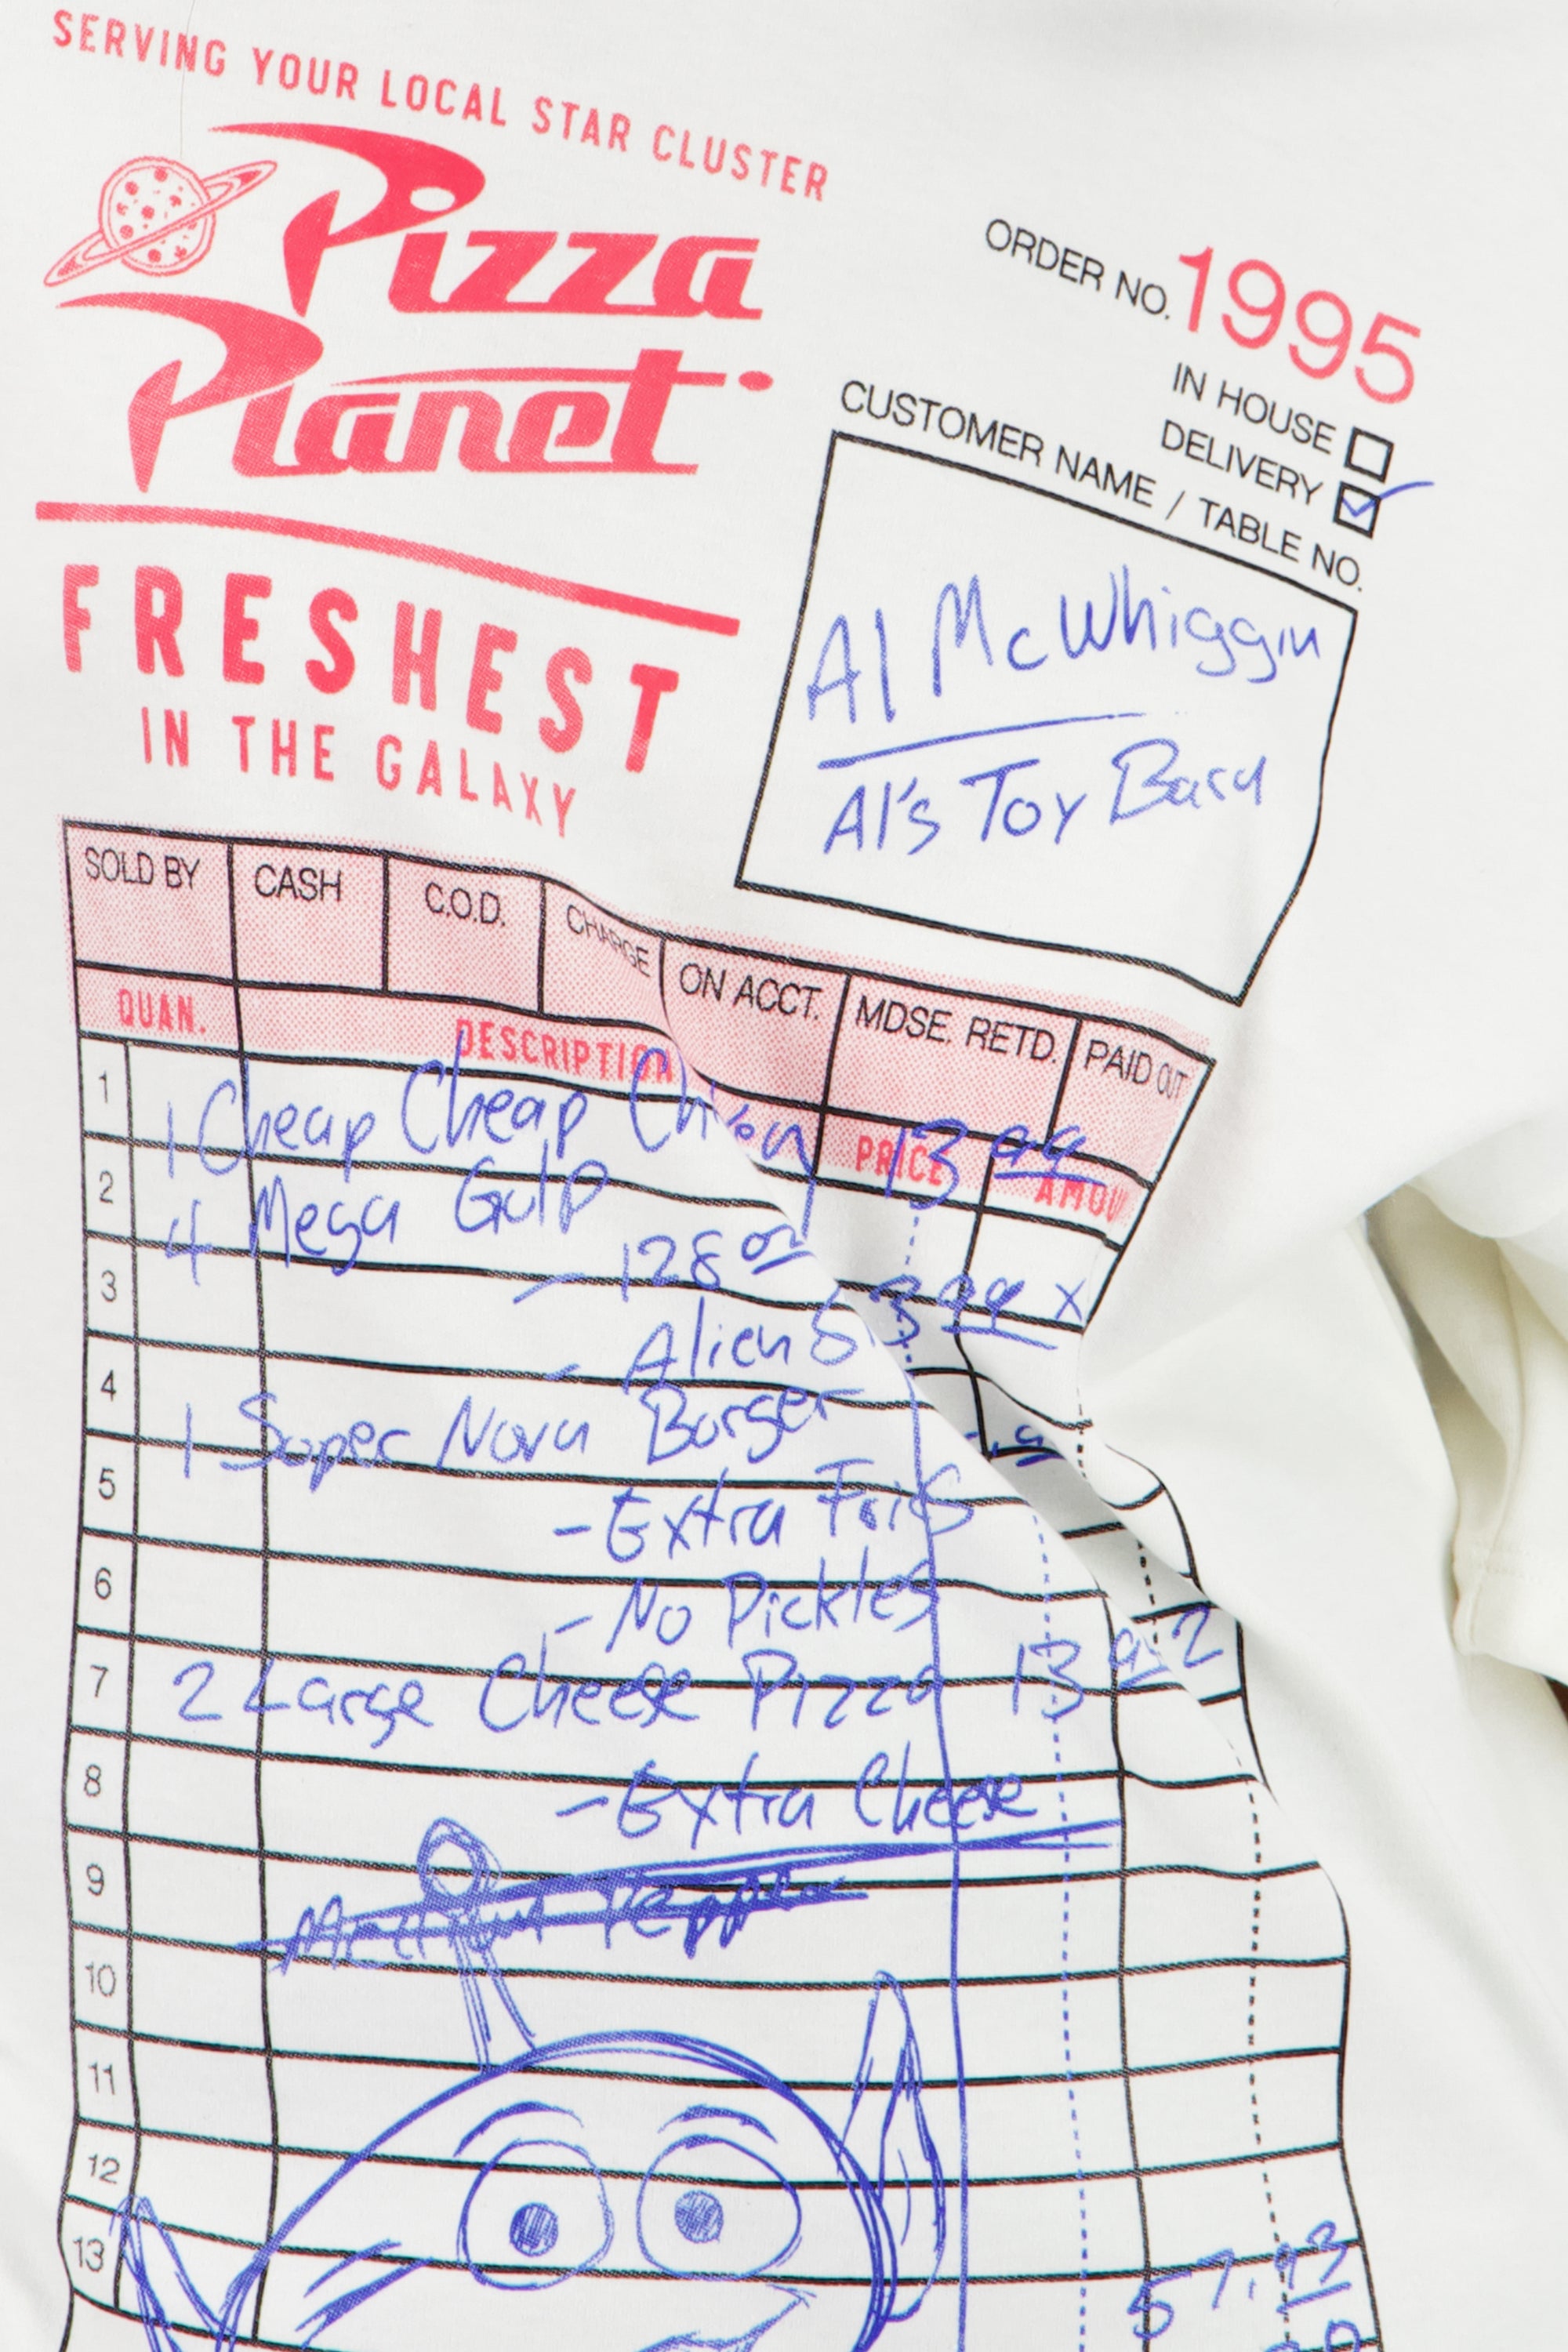 SERVING YOUR LOCAL STAR CLUSTER
Pizza
Planet
FRESHEST
IN THE GALAXY
ORDER NO. 1995
IN HOUSE
DELIVERY
CUSTOMER NAME / TABLE NO.
Al McWhiggin
Al's Toy Barn
SOLD BY CASH C.O.D. CHARGE ON ACCT. MDSE. RETD. PAID OUT
QUAN. DESCRIPTION PRICE AMOU
1 1 Cheap Cheap 13 99
2 4 Mega Gulp
3 - 128 oz 3 99 x
4 - Alien
5 1 Super Nova Burger
- Extra Fries
6 - No Pickles
7 2 Large Cheese Pizza 13
8 - Extra Cheese
9
10
11
12
13
57.93